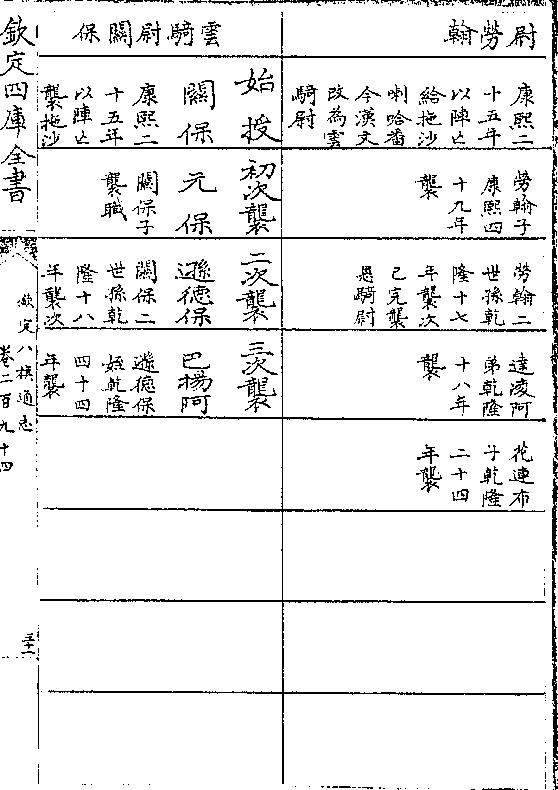 尉勞翰
康熙二
十五年
以陣亡
給拖沙
喇哈番
今漢文
改為雲
騎尉
勞翰子
康熙四
十九年
襲
勞翰二
世孫乾
隆十七
年襲次
已完襲
恩騎尉
達凌阿
弟乾隆
十八年
襲
花連布
子乾隆
二十四
年襲
雲騎尉關保
始授
關保
康熙二
十五年
以陣亡
襲拖沙
初次襲
元保
關保子
襲職
二次襲
遜德保
關保二
世孫乾
隆十八
年襲次
三次襲
巴揚阿
遜德保
姪乾隆
四十四
年襲
欽定四庫全書
欽定八旗通志
卷二百九十四